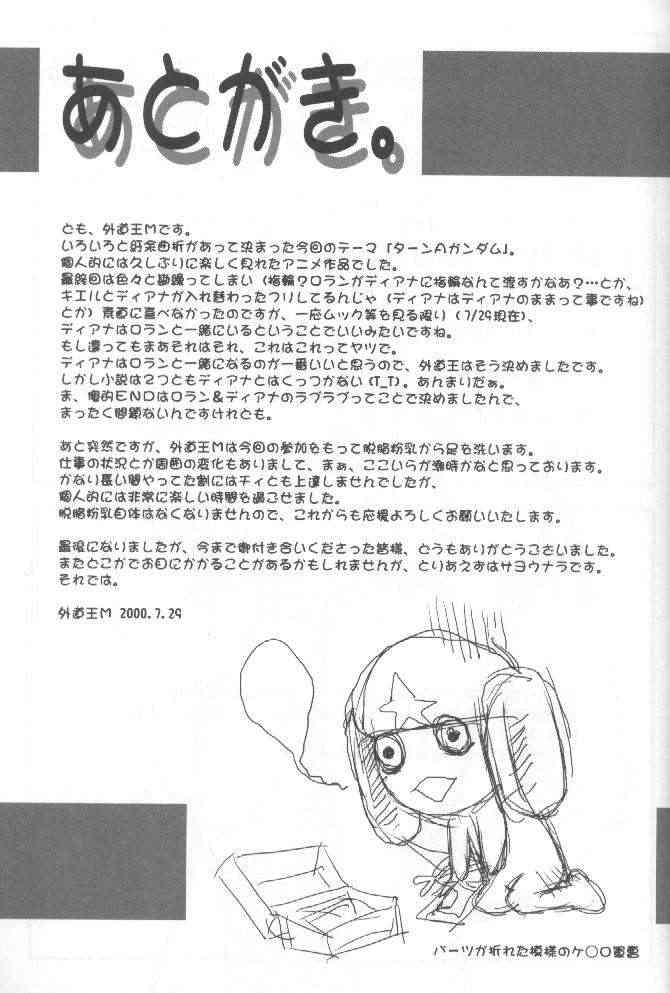 あとがき。
ども、外道王Mです。
いろいろと紆余曲折があって決まった今回のテーマ「ターンAガンダム」。
個人的には久しぶりに楽しく見れたアニメ作品でした。
最終回は色々と勘繰ってしまい(指輪?ロランがディアナに指輪なんて渡すかなあ?…とか、
キエルとディアナが入れ替わったフリしてるんじゃ(ディアナはディアナのままって事ですね)
とか)素直に喜べなかったのですが、一応ムック等を見る限り(7/29現在)、
ディアナはロランと一緒にいるということでいいみたいですね。
もし違ってもまぁそれはそれ、これはこれってヤツで。
ディアナはロランと一緒になるのが一番いいと思うので、外道王はそう決めましたです。
しかし小説は2つともディアナとはくっつかない(T_T)。あんまりだぁ。
ま、俺的ENDはロラン&ディアナのラブラブってことで決めましたんで、
まったく問題ないんですけれども。
あと突然ですが、外道王Mは今回の参加をもって脱脂粉乳から足を洗います。
仕事の状況とか周囲の変化もありまして、まぁ、ここいらが潮時かなと思っております。
かなり長い間やってた割にはチィとも上達しませんでしたが、
個人的には非常に楽しい時間を過ごせました。
脱脂粉乳自体はなくなりませんので、これからも応援よろしくお願いいたします。
最後になりましたが、今まで御付き合いくださった皆様、どうもありがとうございました。
またどこかでお目にかかることがあるかもしれませんが、とりあえずはサヨウナラです。
それでは。
外道王M 2000.7.29
パーツが折れた模様のケ○ロ軍曹